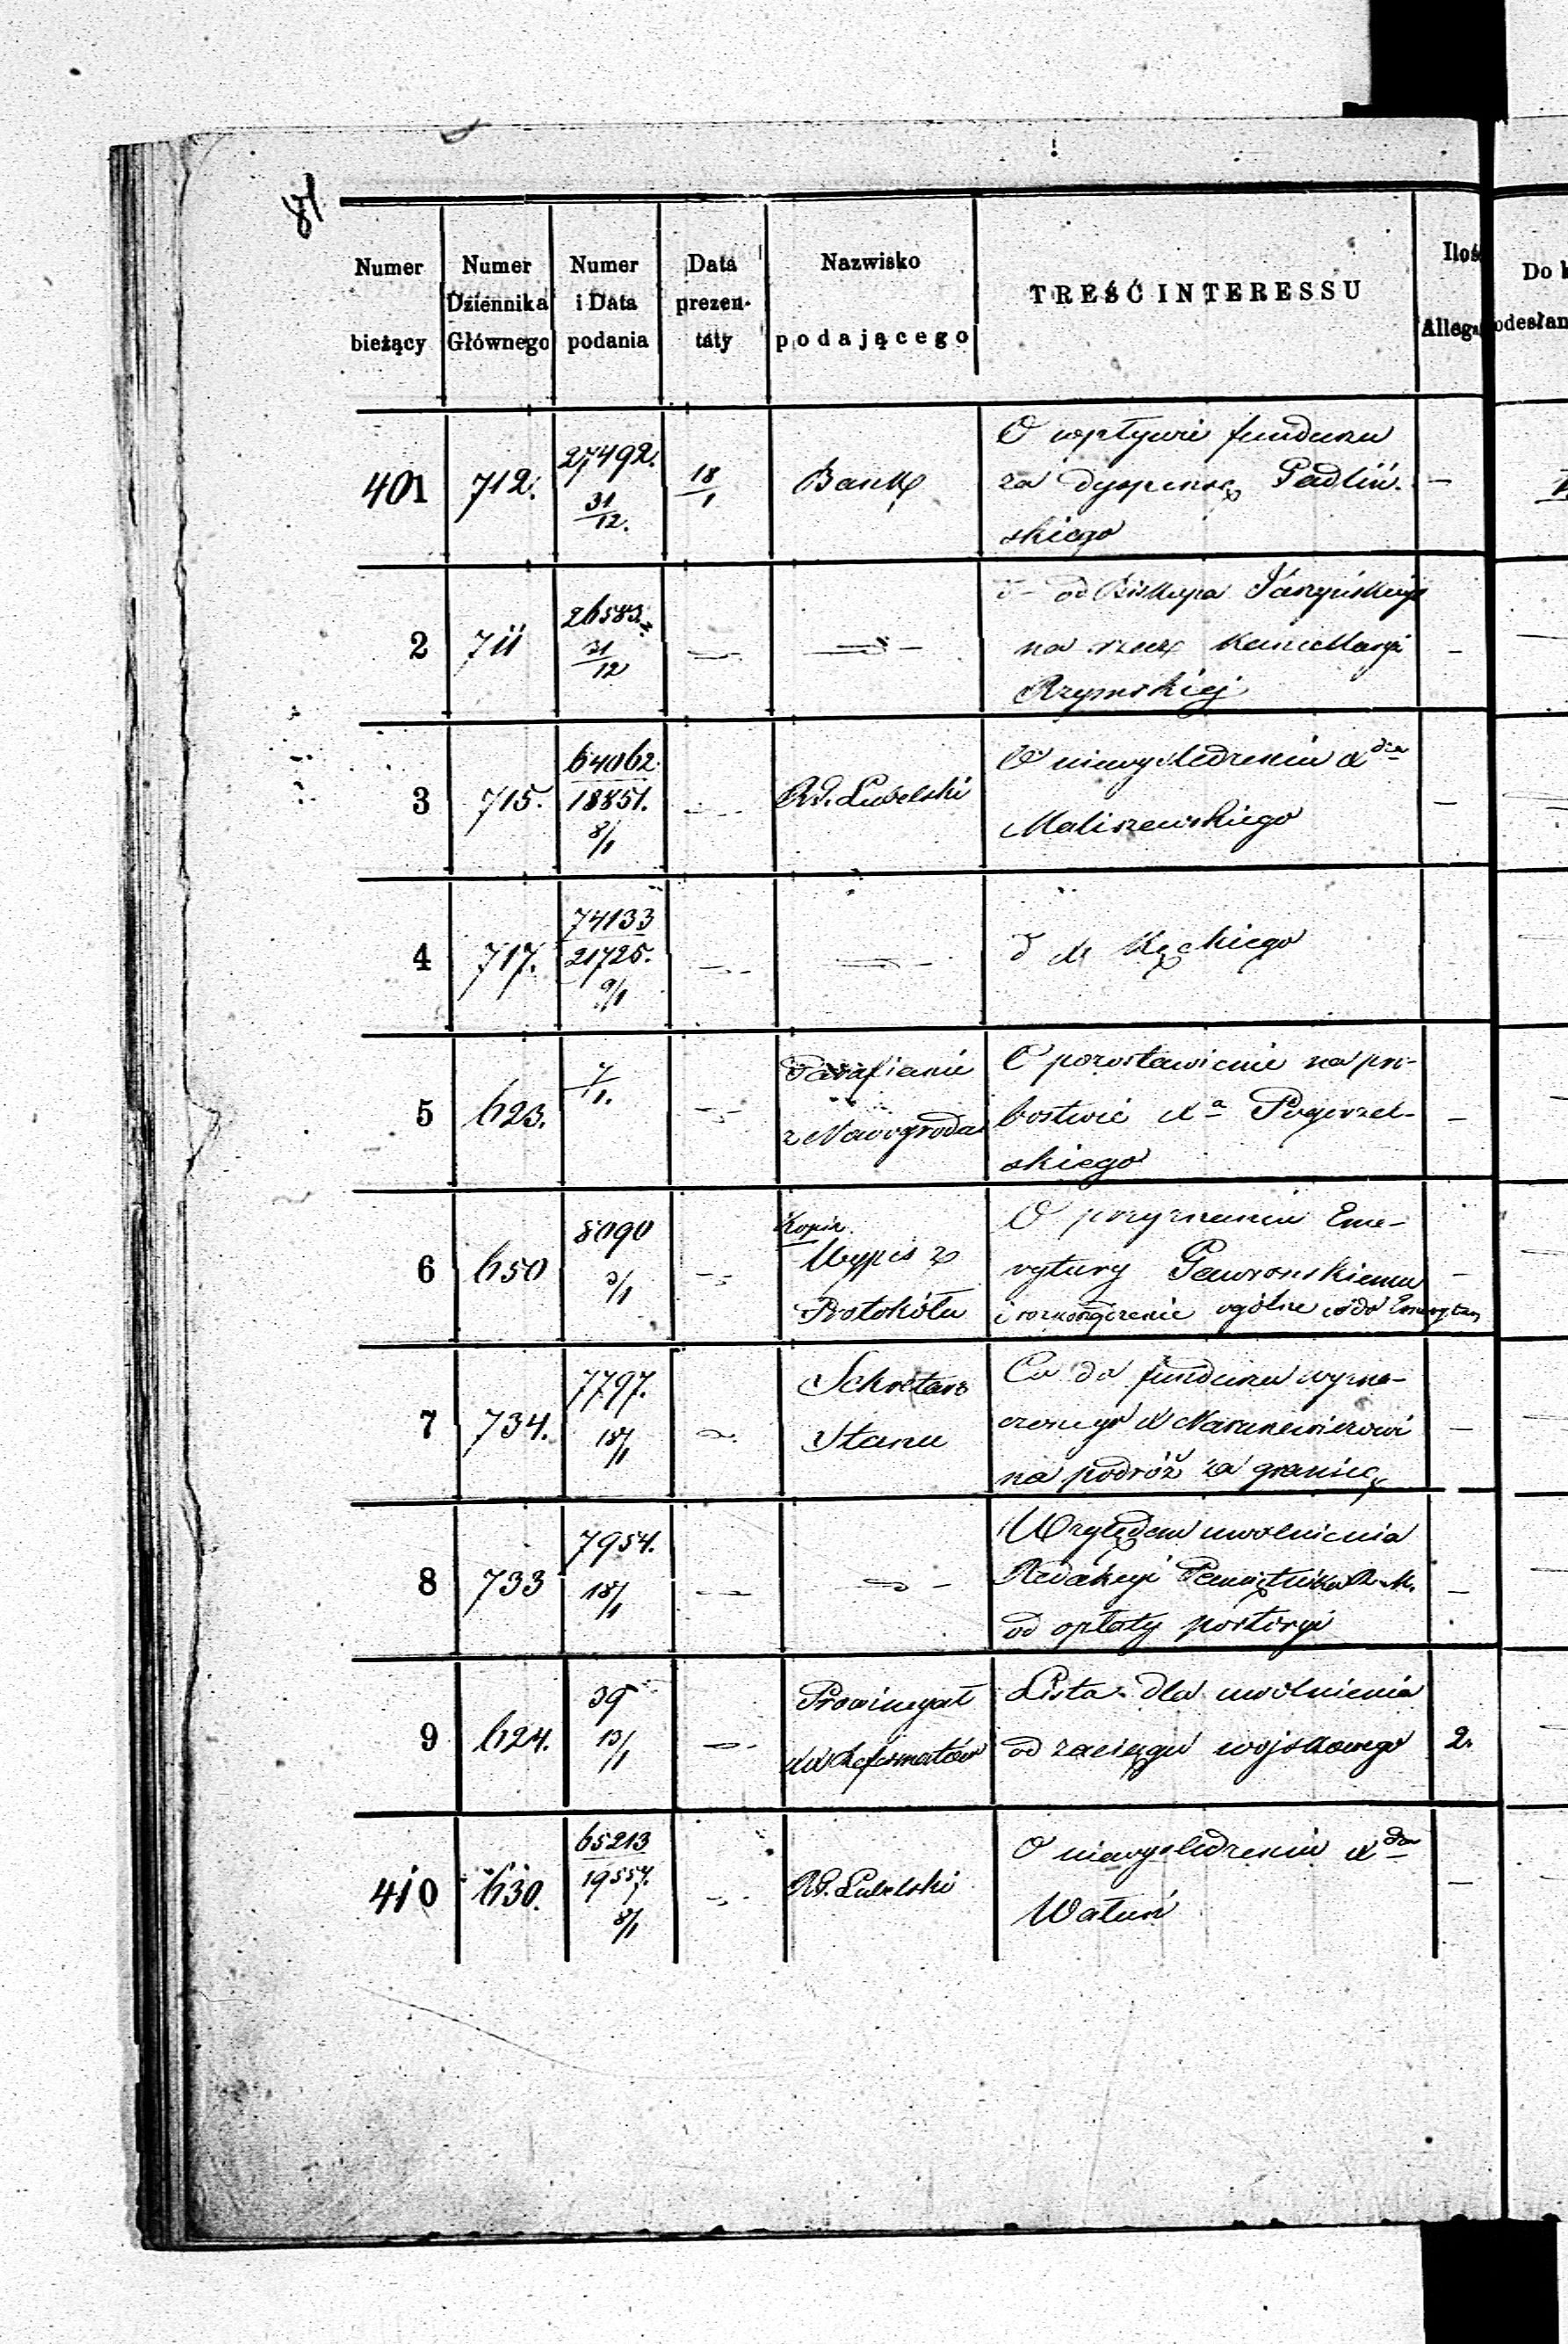 81
Numer bieżący
Numer Dziennika Głównego
Numer i Data podania
Data prezen- taty
Nazwisko podającego
TREŚĆ INTERESSU
Iloś Alleg.
Do k odesłan
401 712. 27492. 31/12. 18/1 Bank
O wpływie funduszu
za dyspensę Padliń-
skiego
2 711 26583. 31/12
d- od Biskupa
na rzecz Kancellaryi
Rzymskiej
3 715. 64062 18851. 8/1 Rd. Lubelski
O niewyśledzeniu Xdza
Maliszewskiego
4 717. 74133 21725. 9/1
d X Kąckiego
5 623. 7/1. Parafianie z Nowogroda
O pozostawienie na pro-
bostwie Xa Pogorzel-
skiego
6 650 8090 3/1 Kopia Wypis z Protokółu
O przyznaniu Eme-
rytury Gawronskiemu
i rozporządzenie ogólne co do Emerytur
7 734. 7797. 18/1 Sekretarz Stanu
Co do funduszu wyzna-
czonego X Naruszewiczowi
na podróż za granicę
8 733 7954. 18/1
Względem uwolnienia
Redakcyi Pamiętnika R. M.
od opłaty portoryi
9 624. 39 13/1 Prowincyał XX Reformatów
Lista dla uwolnienia
od zaciągu wojskowego 2.
410 630. 65213 19557. 8/1 Rd. Lubelski
O niewyśledzeniu Xdza
Watuń